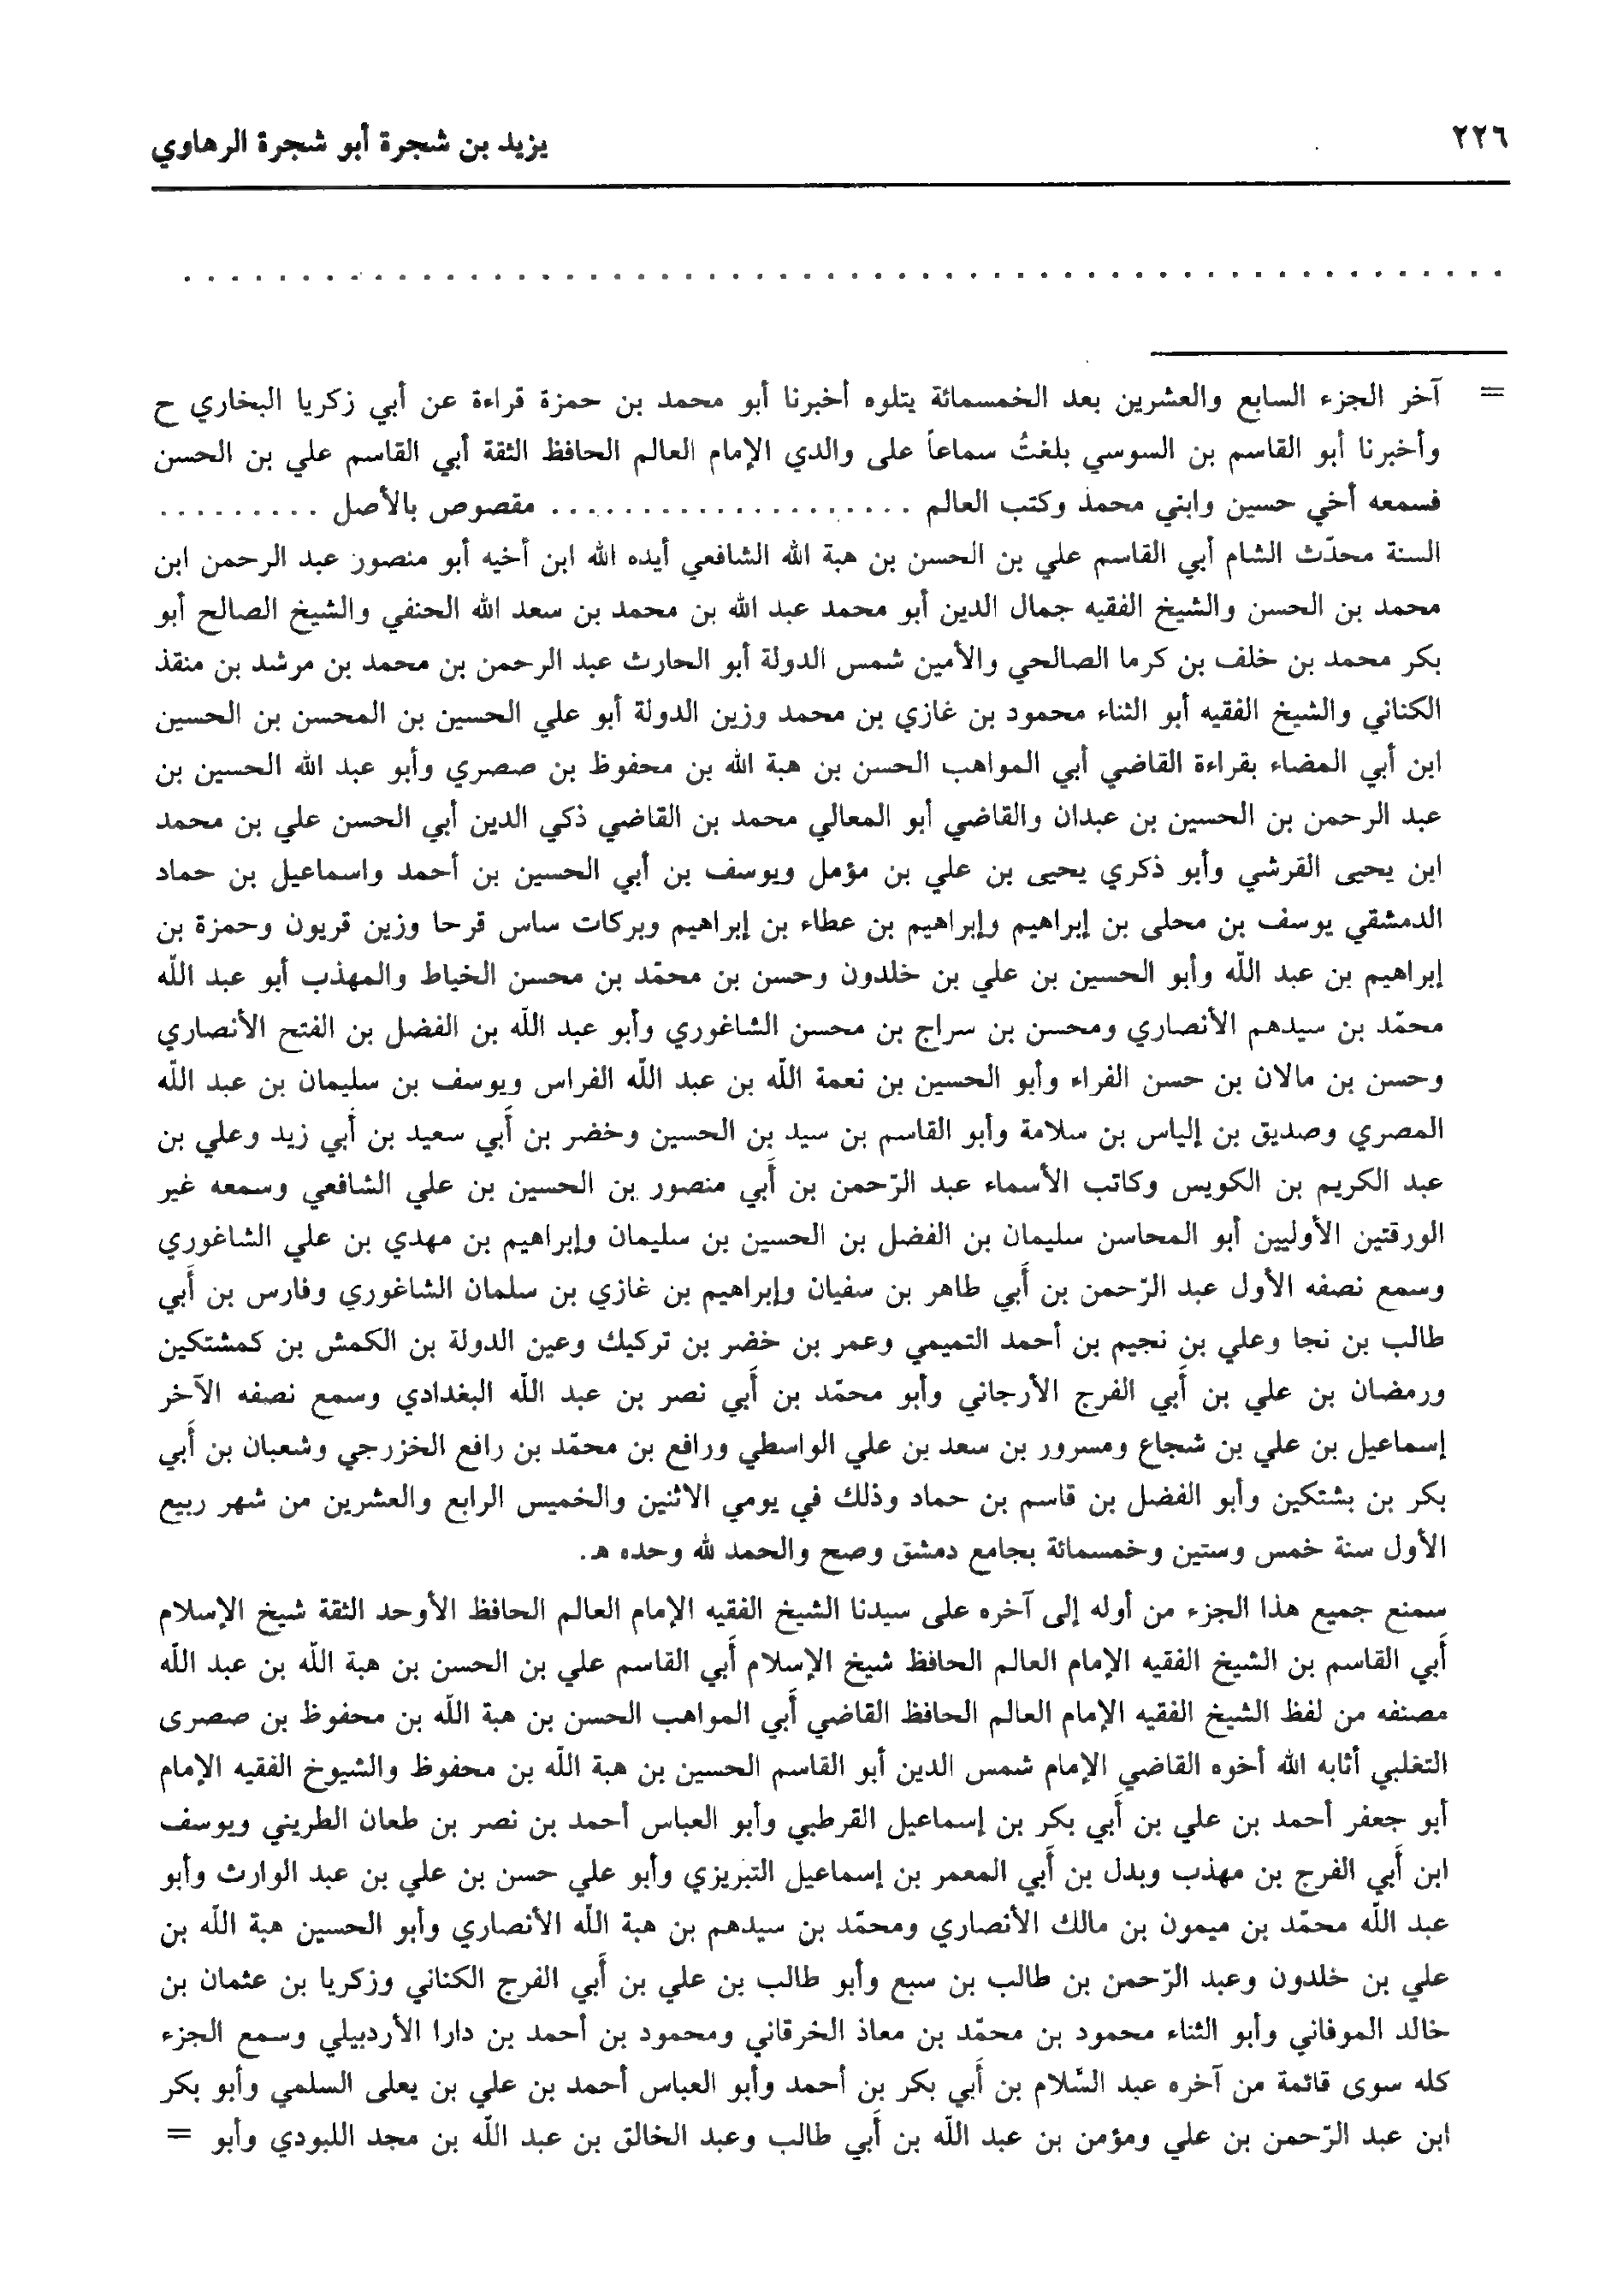 ٢٢٦ يزيد بن شجرة أبو شجرة الرهاوي
. . . . . . . . . . . . . . . . . . . . . . . . . . . . . . . . . . . . . . . . . . . . . . . . . . . . . . . .
= آخر الجزء السابع والعشرين بعد الخمسمائة يتلوه أخبرنا أبو محمد بن حمزة قراءة عن أبي زكريا البخاري ح
وأخبرنا أبو القاسم بن السوسي بلغتُ سماعاً على والدي الإمام العالم الحافظ الثقة أبي القاسم علي بن الحسن
فسمعه أخي حسين وابني محمد وكتب العالم . . . . . . . . . . . . . . . . . . . مقصوص بالأصل . . . . . . . . .
السنة محدّث الشام أبي القاسم علي بن الحسن بن هبة الله الشافعي أيده الله ابن أخيه أبو منصور عبد الرحمن ابن
محمد بن الحسن والشيخ الفقيه جمال الدين أبو محمد عبد الله بن محمد بن سعد الله الحنفي والشيخ الصالح أبو
بكر محمد بن خلف بن كرما الصالحي والأمين شمس الدولة أبو الحارث عبد الرحمن بن محمد بن مرشد بن منقذ
الكناني والشيخ الفقيه أبو الثناء محمود بن غازي بن محمد وزين الدولة أبو علي الحسين بن المحسن بن الحسين
ابن أبي المضاء بقراءة القاضي أبي المواهب الحسن بن هبة الله بن محفوظ بن صصري وأبو عبد الله الحسين بن
عبد الرحمن بن الحسين بن عبدان والقاضي أبو المعالي محمد بن القاضي ذكي الدين أبي الحسن علي بن محمد
ابن يحيى القرشي وأبو ذكري يحيى بن علي بن مؤمل ويوسف بن أبي الحسين بن أحمد واسماعيل بن حماد
الدمشقي يوسف بن محلى بن إبراهيم وإبراهيم بن عطاء بن إبراهيم وبركات ساس قرحا وزين قريون وحمزة بن
إبراهيم بن عبد اللّه وأبو الحسين بن علي بن خلدون وحسن بن محمّد بن محسن الخياط والمهذب أبو عبد اللّه
محمّد بن سيدهم الأنصاري ومحسن بن سراج بن محسن الشاغوري وأبو عبد اللّه بن الفضل بن الفتح الأنصاري
وحسن بن مالان بن حسن الفراء وأبو الحسين بن نعمة اللّه بن عبد اللّه الفراس ويوسف بن سليمان بن عبد اللّه
المصري وصديق بن إلياس بن سلامة وأبو القاسم بن سيد بن الحسين وخضر بن أبي سعيد بن أبي زيد وعلي بن
عبد الكريم بن الكويس وكاتب الأسماء عبد الرّحمن بن أبي منصور بن الحسين بن علي الشافعي وسمعه غير
الورقتين الأوليين أبو المحاسن سليمان بن الفضل بن الحسين بن سليمان وإبراهيم بن مهدي بن علي الشاغوري
وسمع نصفه الأول عبد الرّحمن بن أبي طاهر بن سفيان وإبراهيم بن غازي بن سلمان الشاغوري وفارس بن أبي
طالب بن نجا وعلي بن نجيم بن أحمد التميمي وعمر بن خضر بن تركيك وعين الدولة بن الكمش بن كمشتكين
ورمضان بن علي بن أبي الفرج الأرجاني وأبو محمّد بن أبي نصر بن عبد اللّه البغدادي وسمع نصفه الآخر
إسماعيل بن علي بن شجاع ومسرور بن سعد بن علي الواسطي ورافع بن محمّد بن رافع الخزرجي وشعبان بن أبي
بكر بن بشتكين وأبو الفضل بن قاسم بن حماد وذلك في يومي الاثنين والخميس الرابع والعشرين من شهر ربيع
الأول سنة خمس وستين وخمسمائة بجامع دمشق وصح والحمد لله وحده هـ.
سمنع جميع هذا الجزء من أوله إلى آخره على سيدنا الشيخ الفقيه الإمام العالم الحافظ الأوحد الثقة شيخ الإسلام
أبي القاسم بن الشيخ الفقيه الإمام العالم الحافظ شيخ الإسلام أبي القاسم علي بن الحسن بن هبة اللّه بن عبد اللّه
مصنفه من لفظ الشيخ الفقيه الإمام العالم الحافظ القاضي أبي المواهب الحسن بن هبة اللّه بن محفوظ بن صصرى
التغلبي أثابه الله أخوه القاضي الإمام شمس الدين أبو القاسم الحسين بن هبة اللّه بن محفوظ والشيوخ الفقيه الإمام
أبو جعفر أحمد بن علي بن أبي بكر بن إسماعيل القرطبي وأبو العباس أحمد بن نصر بن طعان الطريني ويوسف
ابن أبي الفرج بن مهذب وبدل بن أبي المعمر بن إسماعيل التبريزي وأبو علي حسن بن علي بن عبد الوارث وأبو
عبد اللّه محمّد بن ميمون بن مالك الأنصاري ومحمّد بن سيدهم بن هبة اللّه الأنصاري وأبو الحسين هبة اللّه بن
علي بن خلدون وعبد الرّحمن بن طالب بن سبع وأبو طالب بن علي بن أبي الفرج الكناني وزكريا بن عثمان بن
خالد الموفاني وأبو الثناء محمود بن محمّد بن معاذ الخرقاني ومحمود بن أحمد بن دارا الأردبيلي وسمع الجزء
كله سوى قائمة من آخره عبد السّلام بن أبي بكر بن أحمد وأبو العباس أحمد بن علي بن يعلى السلمي وأبو بكر
ابن عبد الرّحمن بن علي ومؤمن بن عبد اللّه بن أبي طالب وعبد الخالق بن عبد اللّه بن مجد اللبودي وأبو =